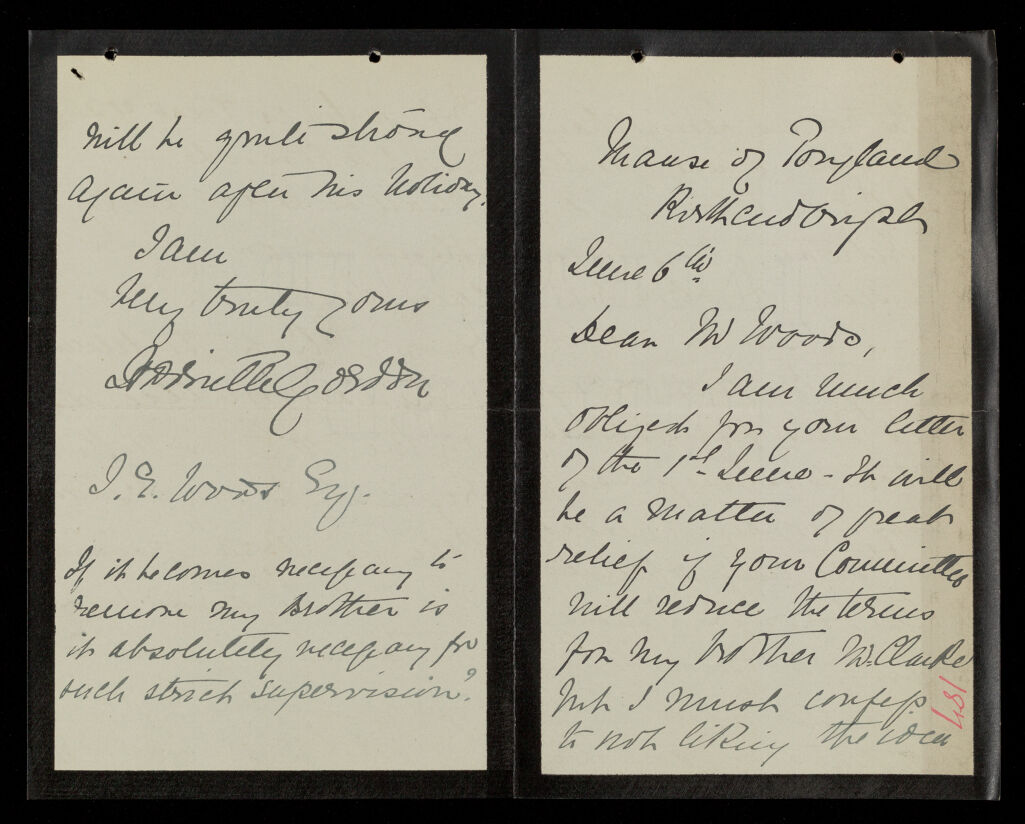 Manse of Tongland
Kirkcudbright
June 6th
Dear Mr Woods,
I am much
obliged for your letter
of the 1st June - It will
be a matter of great
relief if your Committee
will reduce the terms
for my brother Mr. Clarke
but I must confess
to not liking the idea
481
will be quite strong
again after his holiday.
I am
Very truly yours
Gordon
J. E. Woods Esq.
If it becomes necessary to
remove my brother is
it absolutely necessary for
such strict supervision?